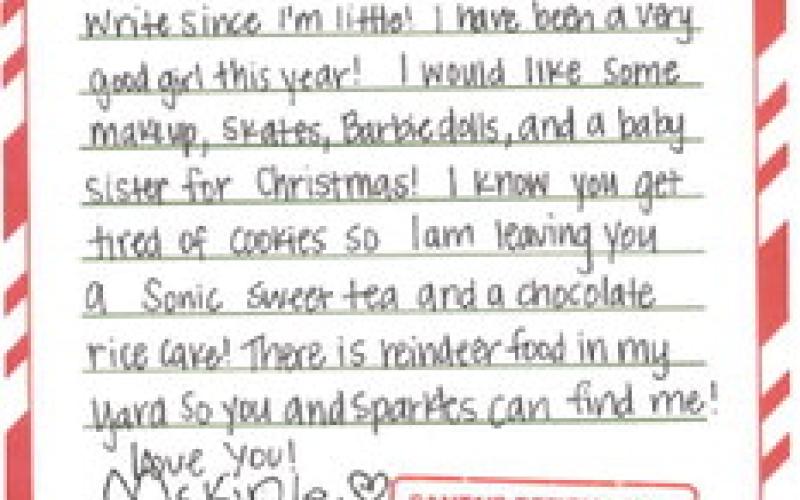 write since I'm little! I have been a very
good girl this year! I would like some
makeup, skates, Barbie dolls, and a baby
sister for Christmas! I know you get
tired of cookies so I am leaving you
a Sonic sweet tea and a chocolate
rice cake! There is reindeer food in my
yard so you and sparkles can find me!
love you!